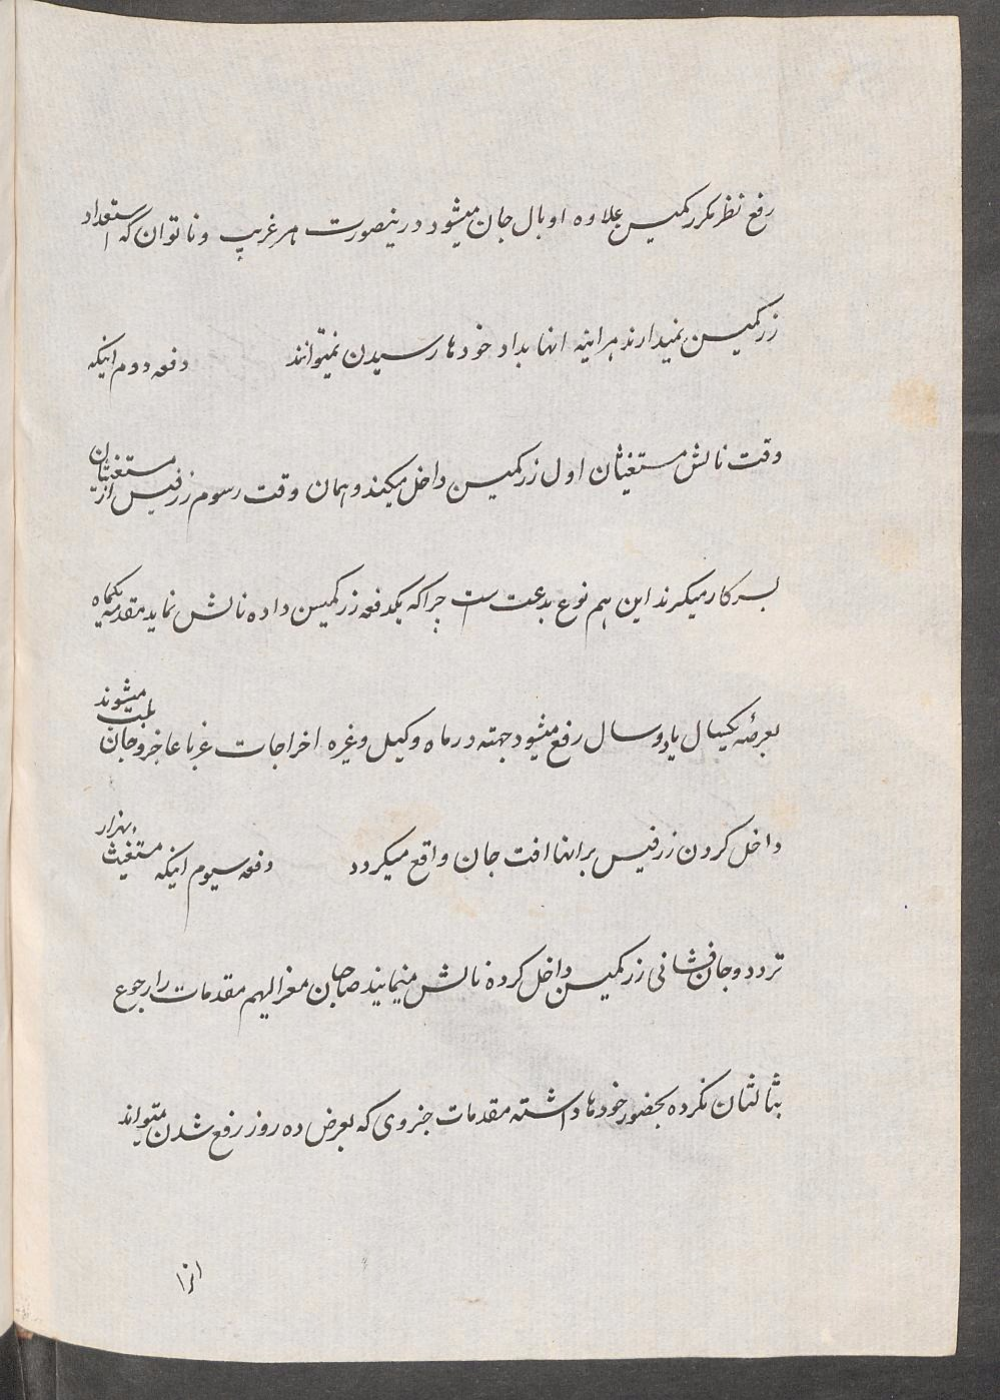 رفع نظر مکرر کمیس علاوه او بال جان میشود درینصورت هر غریب و ناتوان که استعداد
زر کمیسن نمیدارند هر اینه انها بداد خودها رسیدن نمیتوانند دفعه دوم اینکه
وقت نالش مستغیثان اول زر کمیسن داخل میکنند و همان وقت رسوم زر فیس از مستغیثان
بسرکار میگیرند این هم نوع بدعت ست چرا که یکدفعه زر کمیسن داده نالش نماید مقدمه یکماه
بعرصهٔ یکسال یا دو سال رفع میشود جهته درماه وکیل و غیره اخراجات غربا عاجز و جان بلب میشوند
داخل کردن زر فیس بر انها افت جان واقع میگردد دفعه سیوم اینکه مستغیث بهزار
تردد و جان فشانی زر کمیسن داخل کرده نالش مینمایند صاحبان معز الیهم مقدمات را رجوع
بثالثان نکرده بحضور خودها داشته مقدمات جزوی که بعرض ده روز رفع شدن میتواند
انرا